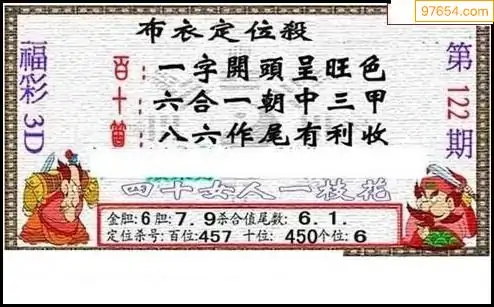 97654.com
布衣定位殺
福彩3D
第122期
百：一字開頭呈旺色
十：六合一朝中三甲
個：八六作尾有利收
四十女人一枝花
金胆:6胆:7.9杀合值尾数: 6.1.
定位杀号:百位:457 十位: 450个位:6